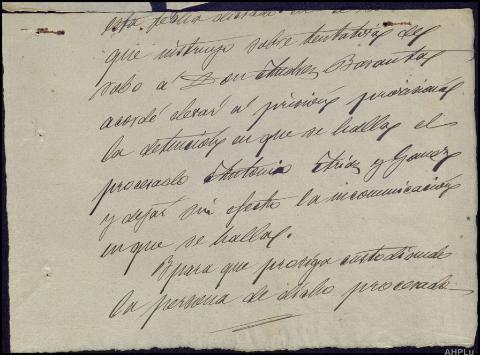 esta fecha dictado en el
que instruyo sobre tentativa de
robo a Don Andres Barantes
acordé elevar a prisión provisional
la detención en que se halla el
procesado Antonio Arias y Gomez
y dejar sin efecto la incomunicación
en que se halla.
Y para que prosiga custodiando
la persona de dicho procesado
AHPLu